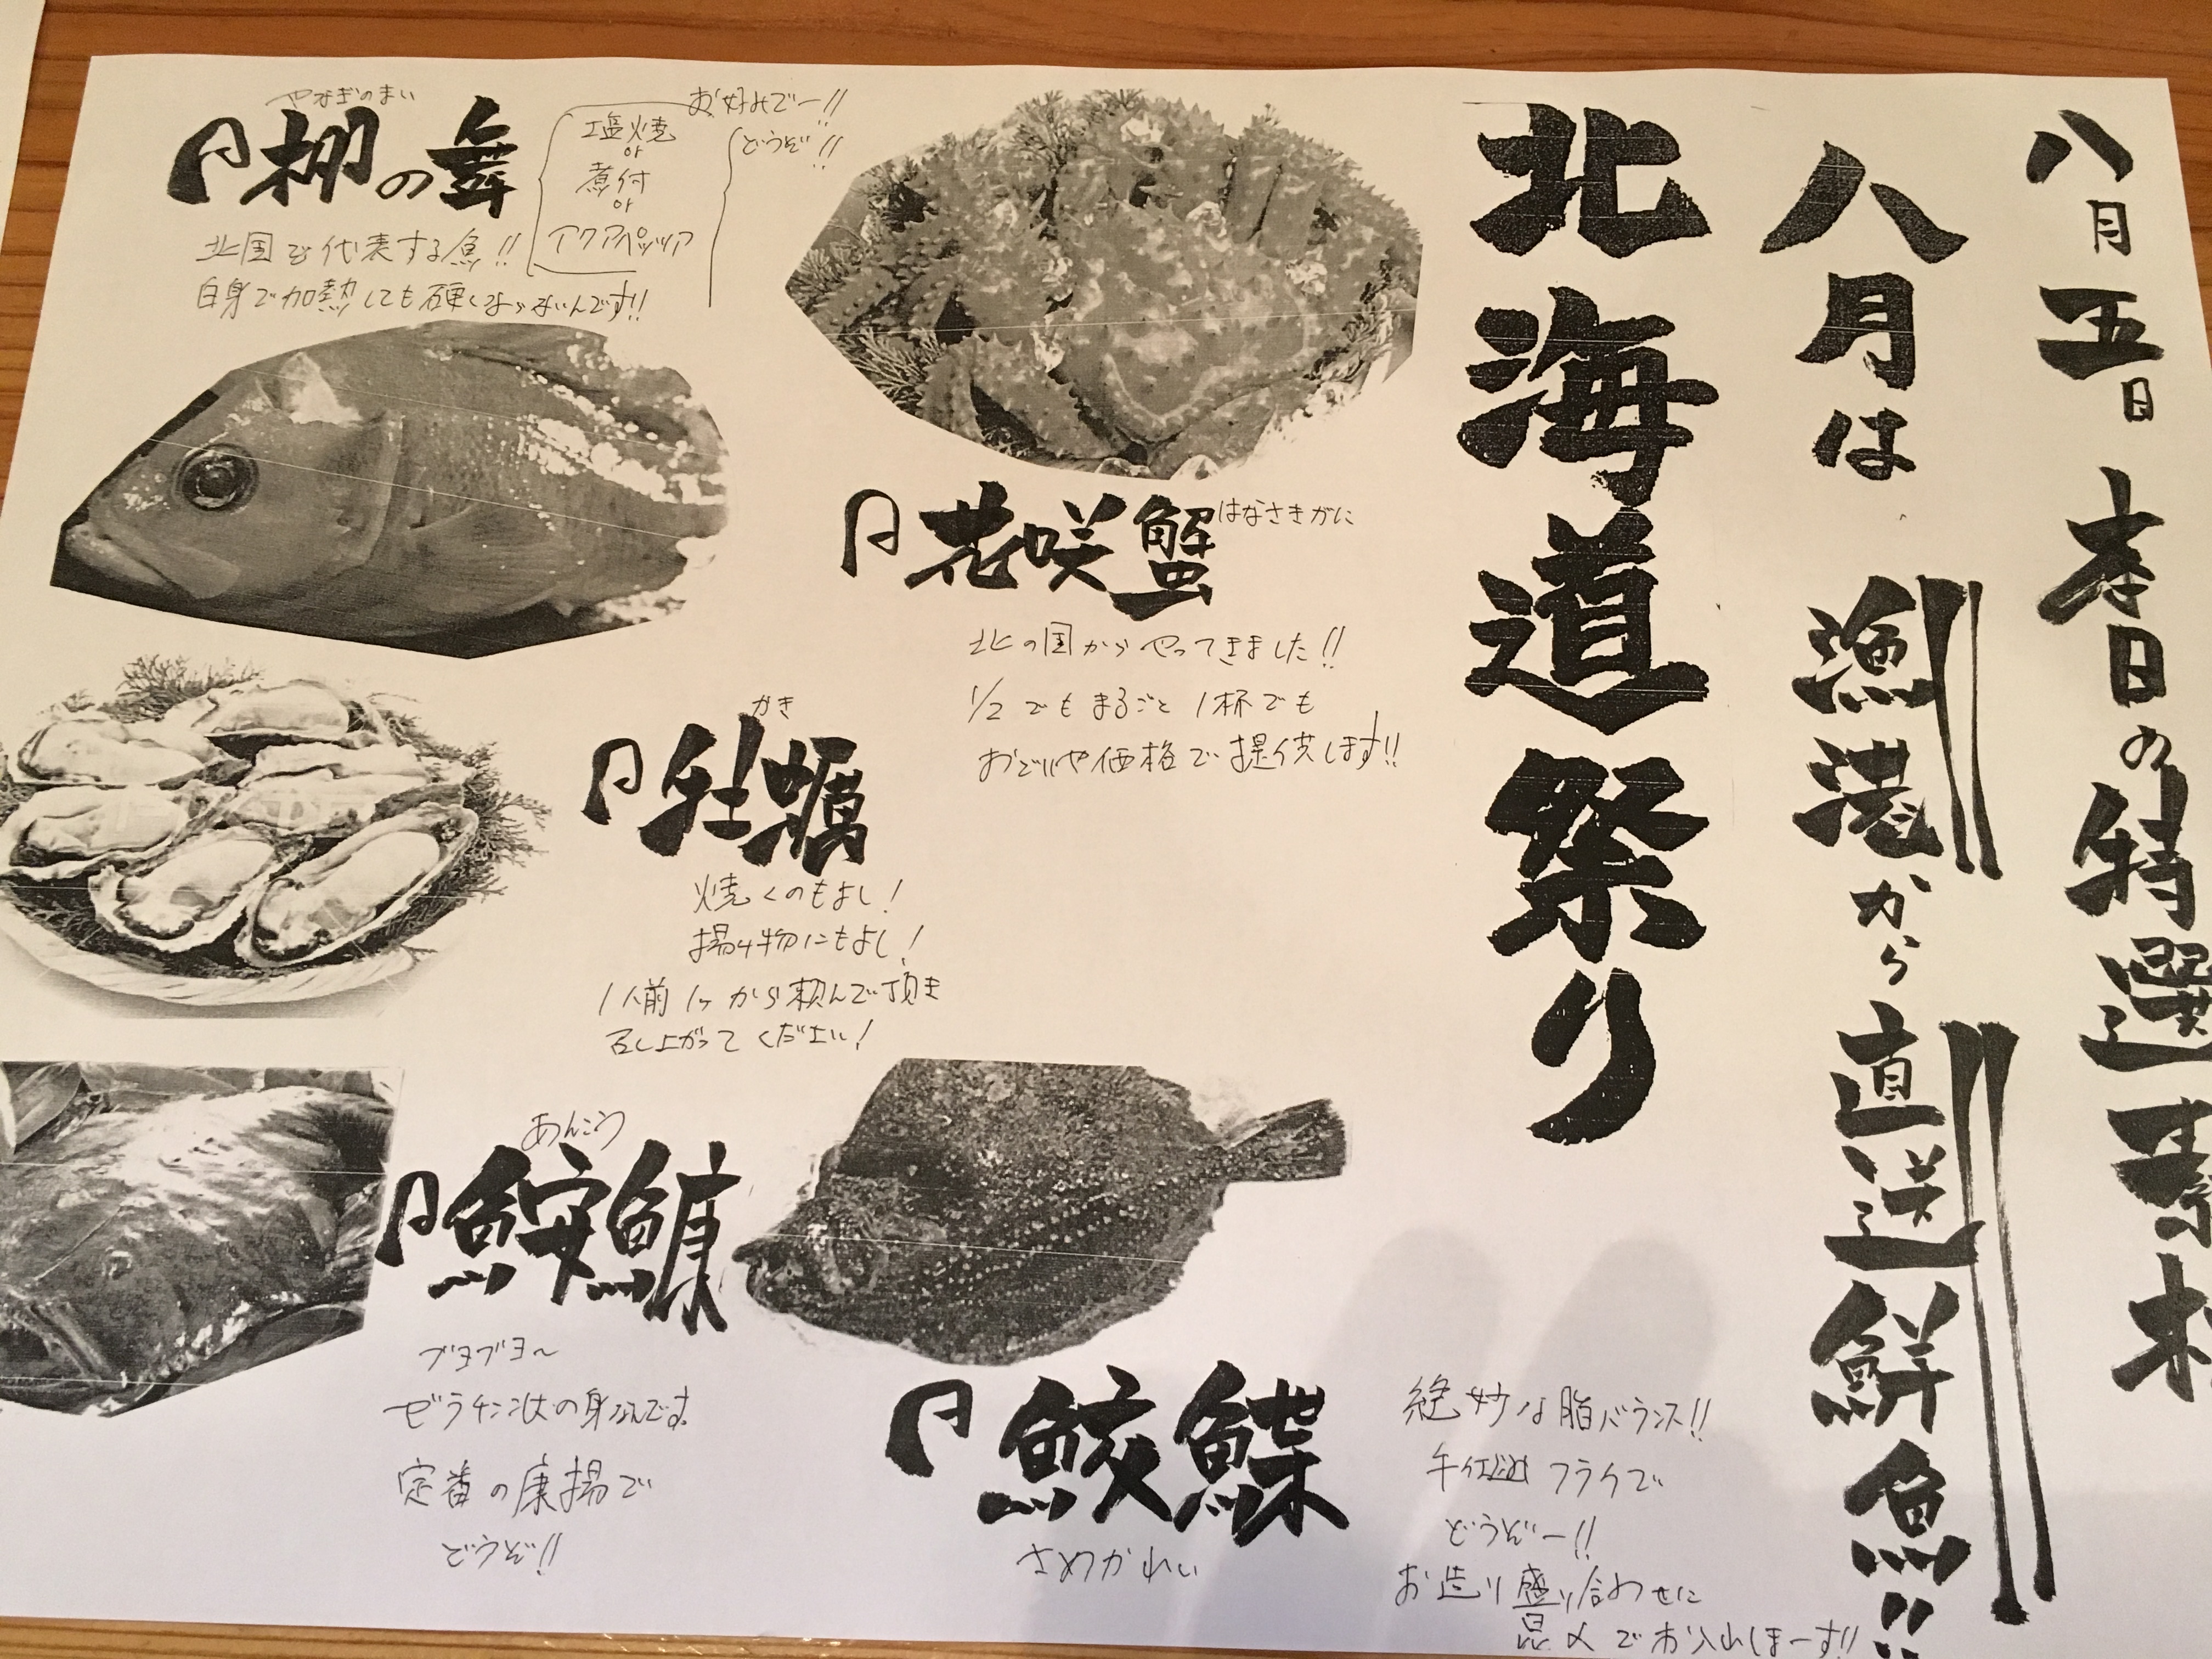 八月五日 本日の特選素材
八月は 漁港から直送鮮魚!!
北海道祭り
花咲蟹
はなさきがに
北の国からやってきました!!
1/2でもまるごと1杯でも
価格で提供します!!
柳の舞
やなぎのまい
北国を代表する魚!!
白身で加熱しても硬くならないんです!!
塩焼
or
煮付
or
アクアパッツァ
お好みでー!!
どうぞ!!
牡蠣
かき
焼くのもよし!
揚げ物にもよし!
1人前1ヶから頼んで頂き
召し上がってください!
鮫鰈
さめかれい
絶妙な脂バランス!!
手仕込みフライで
どうぞー!!
お造り盛り合わせに
昆〆でお入れしまーす!!
鮟鱇
あんこう
ブヨブヨ〜
ゼラチン状の身なんです
定番の唐揚で
どうぞ!!